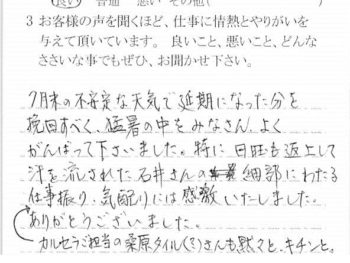 良い 普通 悪い その他( )
3 お客様の声を聞くほど、仕事に情熱とやりがいを
与えて頂いています。 良いこと、悪いこと、どんな
ささいな事でもぜひ、お聞かせ下さい。
7月末の不安定な天気で延期になった分を
挽回すべく、猛暑の中をみなさん、よく
がんばって下さいました。特に日曜も返上して
汗を流された石井さんの細部にわたる
仕事振り、気配りには感激いたしました。
ありがとうございました。
カルセラご担当の桑原タイル(?)さんも黙々と、キチンと。